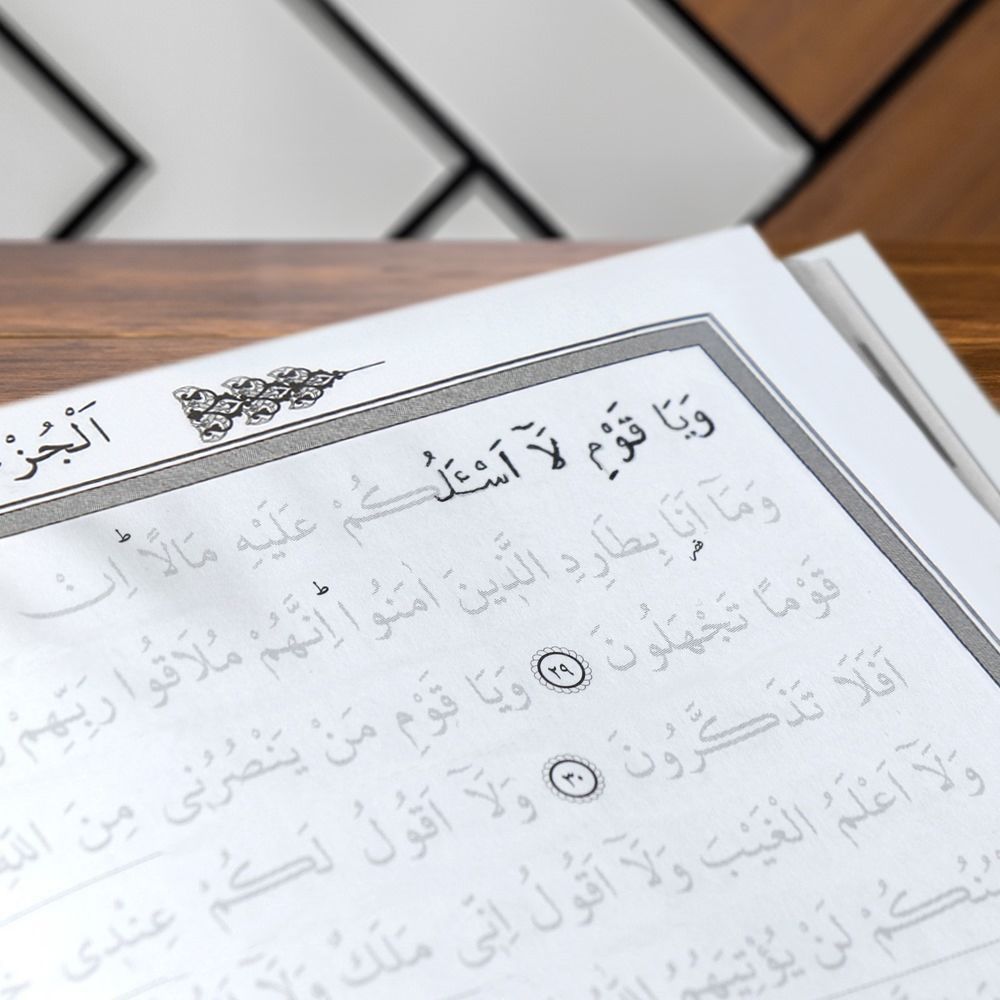 اَلْجُزْ
وَيَا قَوْمِ لَآ اَسْـَٔلُكُمْ عَلَيْهِ مَالًاۜ اِنْ
وَمَآ اَنَا۬ بِطَارِدِ الَّذٖينَ اٰمَنُواۜ اِنَّهُمْ مُلَاقُوا رَبِّهِمْ
قَوْمًا تَجْهَلُونَ ٢٩ وَيَا قَوْمِ مَنْ يَنْصُرُنٖى مِنَ اللّٰهِ
اَفَلَا تَذَكَّرُونَ ٣٠ وَلَآ اَقُولُ لَكُمْ عِنْدٖى
وَلَآ اَعْلَمُ الْغَيْبَ وَلَآ اَقُولُ اِنّٖى مَلَكٌ وَلَآ
لَنْ يُؤْتِيَهُمُ